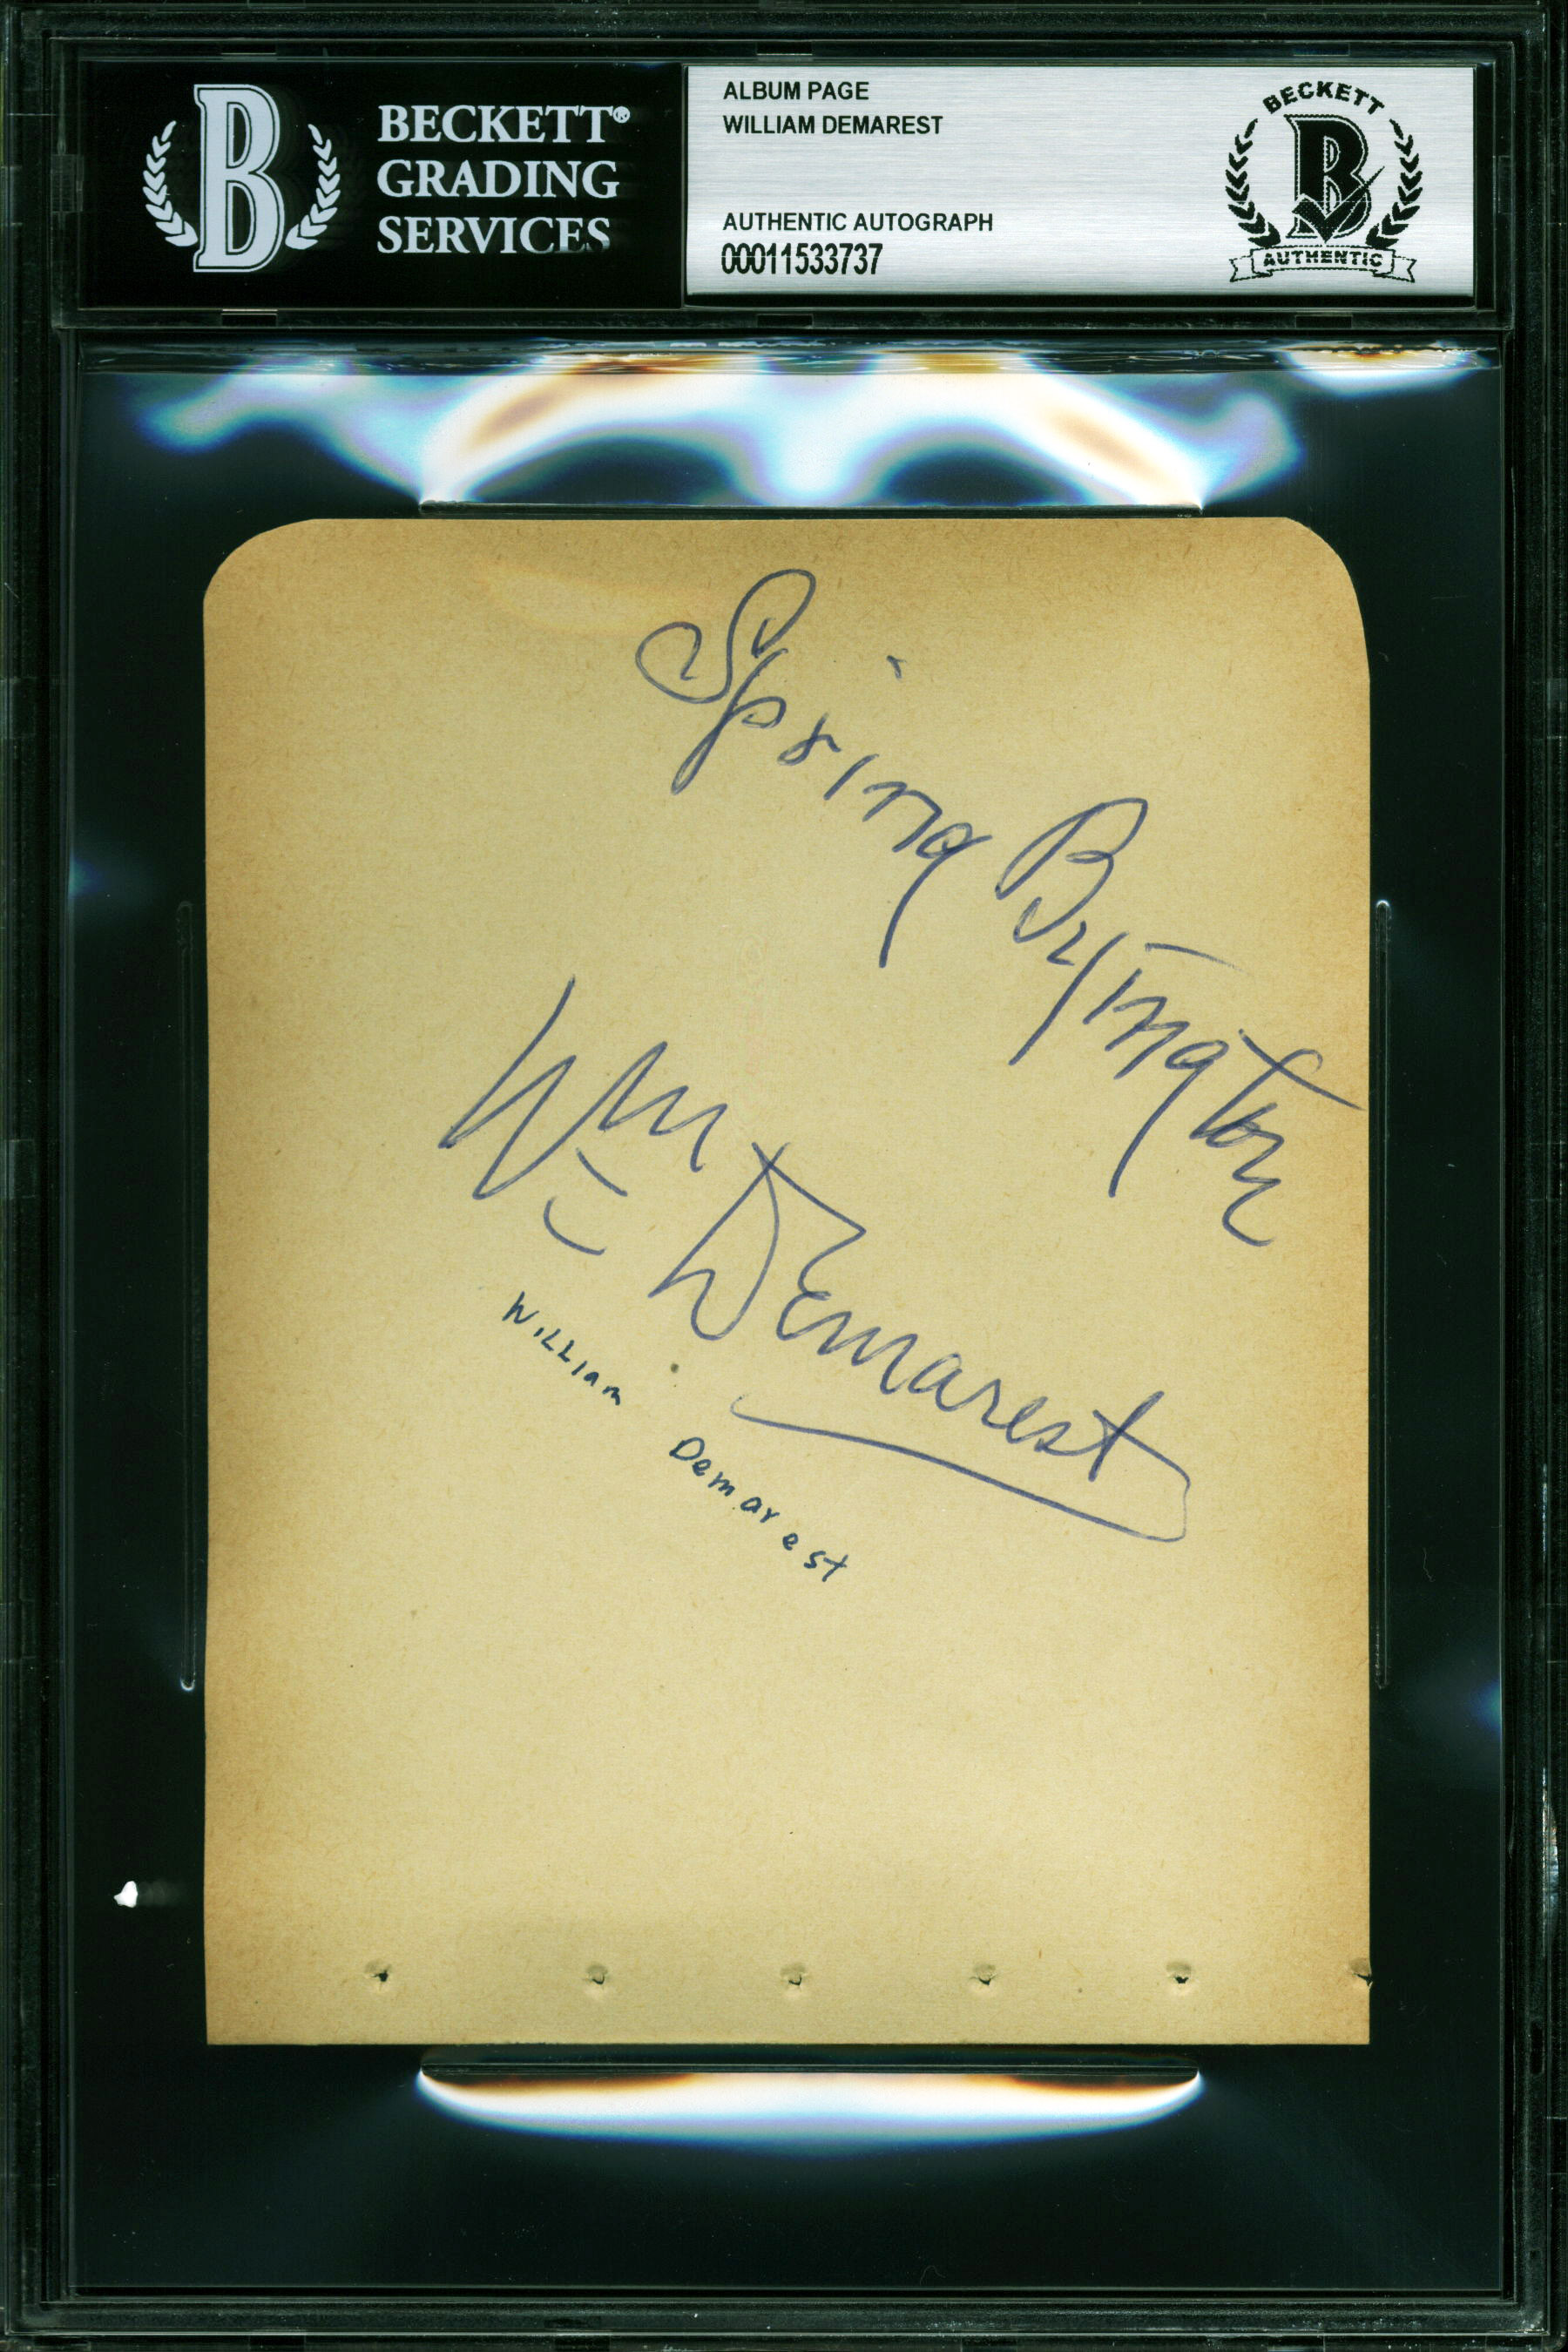 BECKETT®
GRADING
SERVICES
B
ALBUM PAGE
WILLIAM DEMAREST
AUTHENTIC AUTOGRAPH
00011533737
BECKETT
B
AUTHENTIC
Spring Byington
Wm Demarest
William Demarest